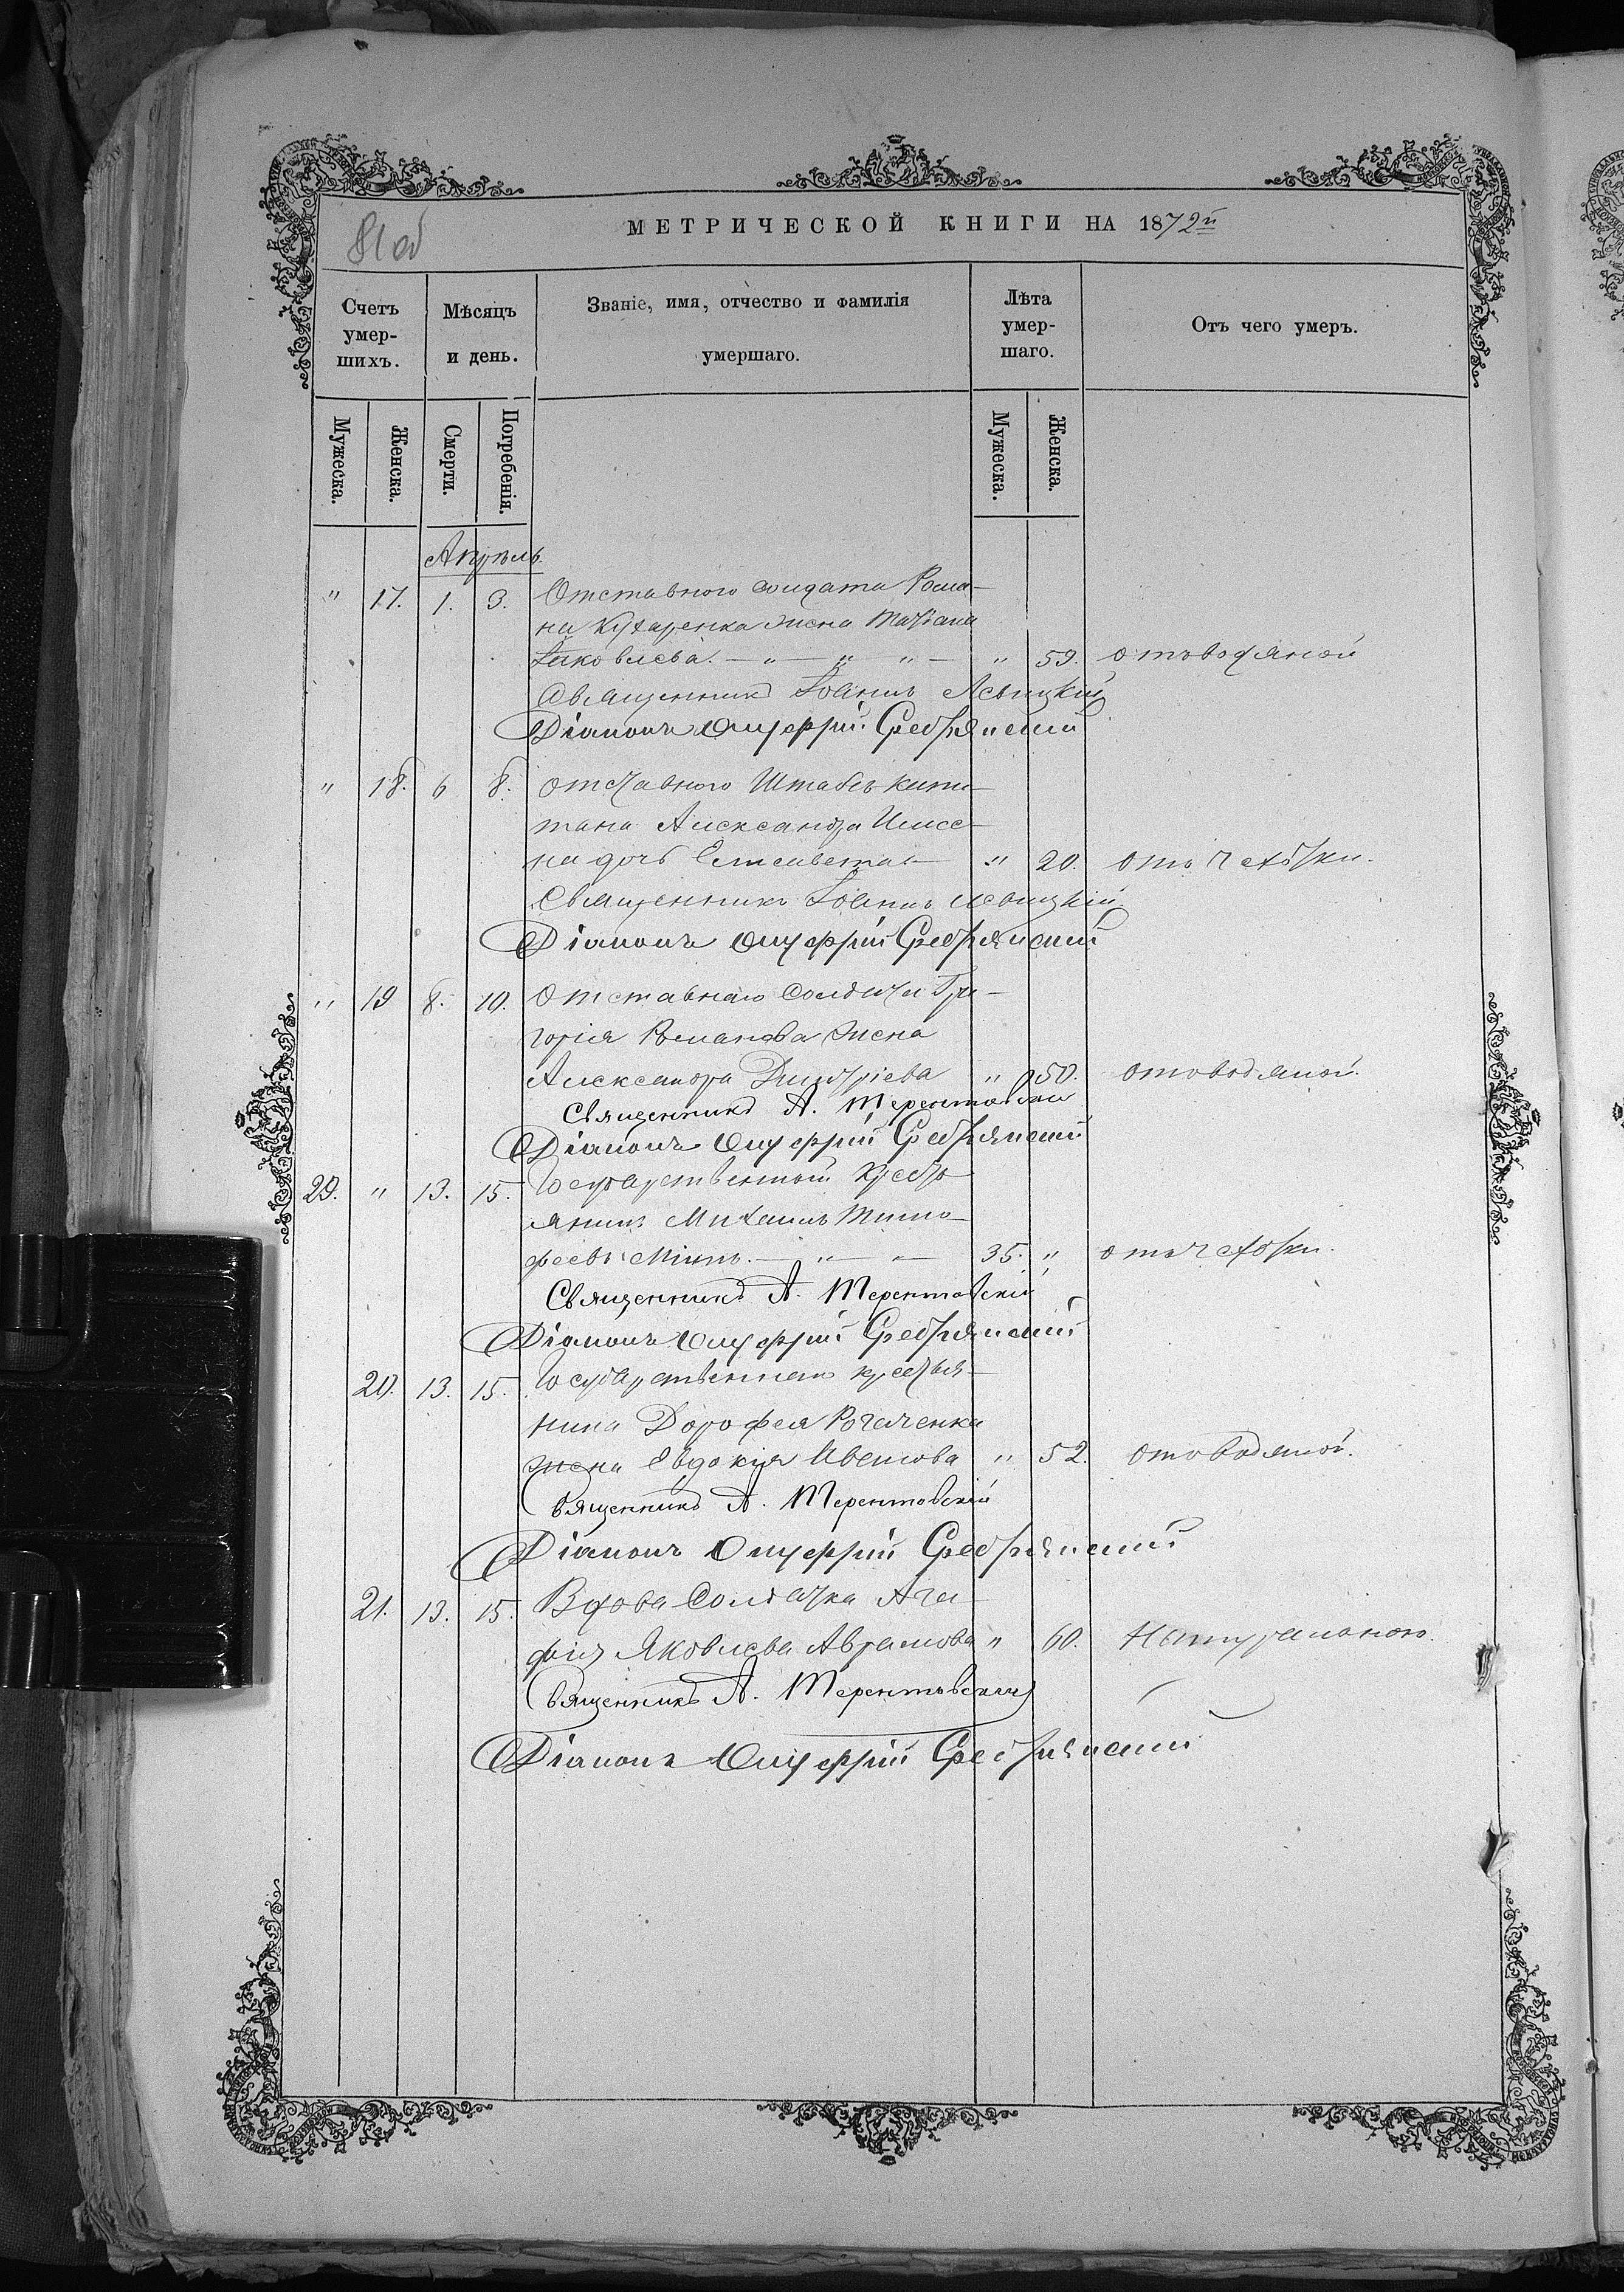 81 об
МЕТРИЧЕСКОЙ КНИГИ НА 1872й
Счетъ умер-шихъ.
Мѣсяцъ и день.
Званіе, имя, отчество и фамилія умершаго.
Лѣта умер-шаго.
Отъ чего умеръ.
Мужеска. Женска. Смерти. Погребенія. Мужеска. Женска.
Апрѣль.
" 17. 1. 3. Отставного солдата Рома-
на Кухаренка жена Татіана
Іаковлева. — " — " " — " 59. отъ водяной
Священникъ Іоаннъ Левицкій
Діаконъ Онуфрій Сребрянскій
" 18. 6 8. отставного Штабсъ капи-
тана Александра
на дочь Елисавета — " 20. отъ чахотки.
Священникъ Іоаннъ Левицкій.
Діаконъ Онуфрій Сребрянскій
" 19 8. 10. Отставнаго Солдата Гри-
горія Романова жена
Александра Димитріева " 50. отъ водяной.
Священникъ А. Терентовскій
Діаконъ Онуфрій Сребрянскій
29. " 13. 15. Государственный кресть-
янинъ Михаилъ Тимо-
феевъ — " — 35. " отъ чахотки.
Священникъ А. Терентовскій
Діаконъ Онуфрій Сребрянскій
20. 13. 15. Государственнаго крестья-
нина Дорофея Рогаченка
жена Евдокія Иванова " 52. отъ водяной.
Священникъ А. Терентовскій
Діаконъ Онуфрій Сребрянскій
21. 13. 15. Вдова Солдатка Ага-
фія Яковлева Аврамова " 60. Натуральною.
Священникъ А. Терентовскій
Діаконъ Онуфрій Сребрянскій